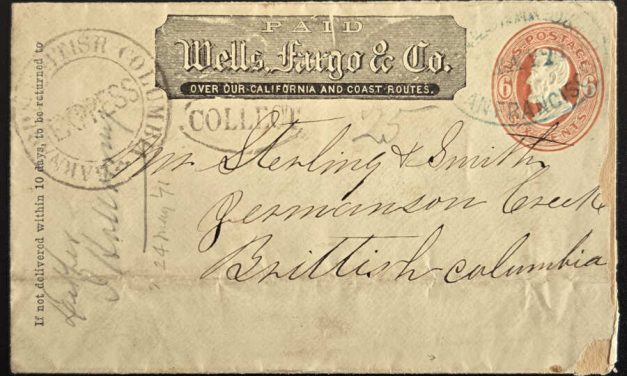 PAID
Wells, Fargo & Co.
OVER OUR CALIFORNIA AND COAST ROUTES.
U.S. POSTAGE
6 6
CENTS
BRITISH COLUMBIA
EXPRESS
BARN
COLLECT
25
Mr Sterling & Smith
Jermanson Creek
Brittish Columbia
If not delivered within 10 days, to be returned to
24 May 71